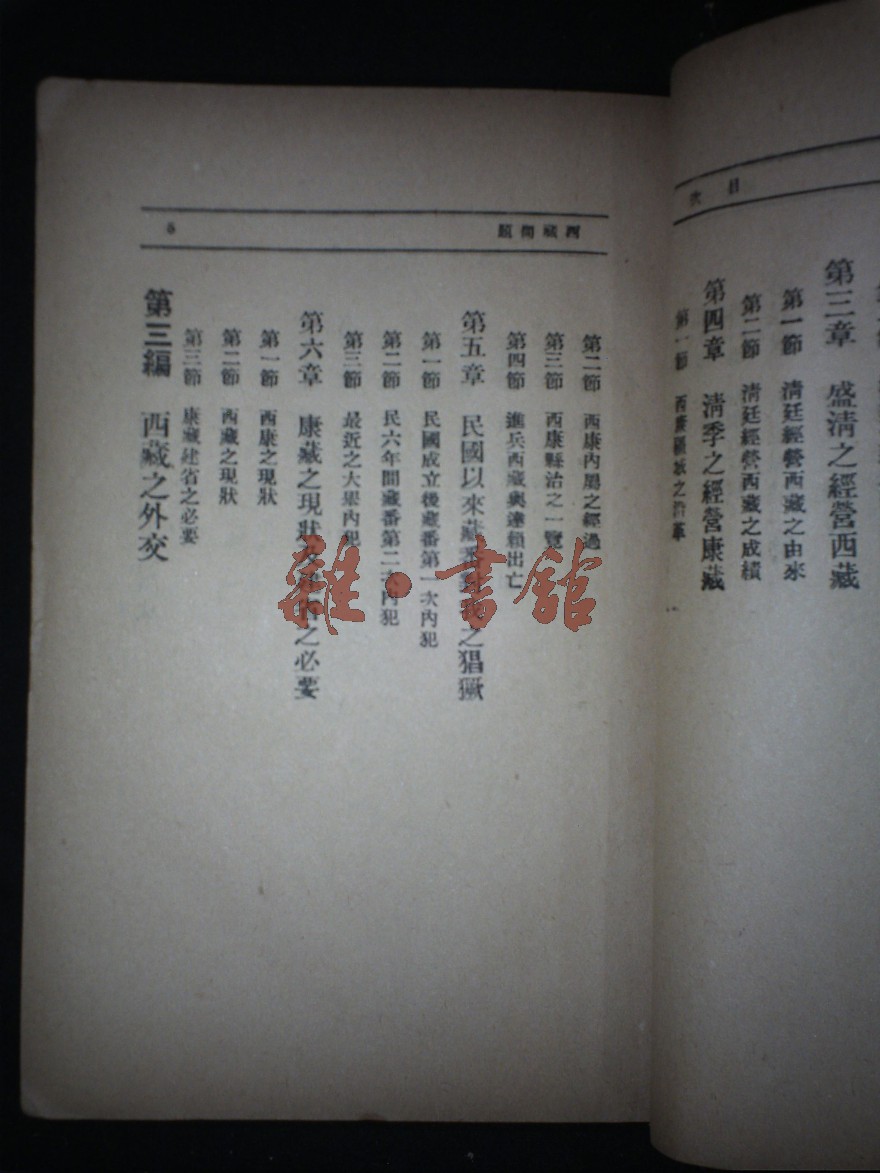 目次
第三章 盛清之經營西藏
第一節 清廷經營西藏之由來
第二節 清廷經營西藏之成績
第四章 清季之經營康藏
第一節 西康疆域之沿革
西藏問題
5
第二節 西康內屬之經過
第三節 西康縣治之一覽
第四節 進兵西藏與達賴出亡
第五章 民國以來藏番之猖獗
第一節 民國成立後藏番第一次內犯
第二節 民六年間藏番第二次內犯
第三節 最近之大舉內犯
第六章 康藏之現狀之必要
第一節 西康之現狀
第二節 西藏之現狀
第三節 康藏建省之必要
第三編 西藏之外交
雜·書館